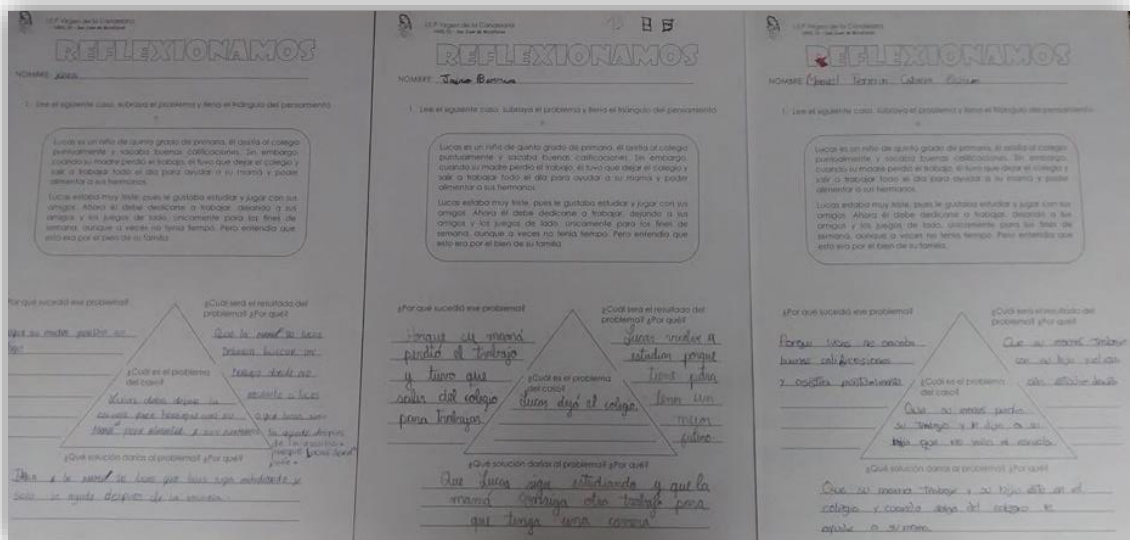 I.E.P Virgen de la Candelaria
REFLEXIONAMOS
NOMBRE:
1. Lee el siguiente caso, subraya el problema y llena el triángulo del pensamiento
Lucas es un niño de quinto grado de primaria, él asistía al colegio
puntualmente y sacaba buenas calificaciones. Sin embargo,
cuando su madre perdió el trabajo, él tuvo que dejar el colegio y
salir a trabajar todo el día para ayudar a su mamá y poder
alimentar a sus hermanos.
Lucas estaba muy triste, pues le gustaba estudiar y jugar con sus
amigos. Ahora él debe dedicarse a trabajar, dejando a sus
amigos y los juegos de lado, únicamente para los fines de
semana, aunque a veces no tenía tiempo. Pero entendía que
esto era por el bien de su familia.
¿Por qué sucedió ese problema?
¿Cuál será el resultado del
problema? ¿Por qué?
Que la mamá de lucas
¿Cuál es el problema
del caso?
Lucas debe dejar la
¿Qué solución darías al problema? ¿Por qué?
solo le ayude después de la escuela.
I.E.P Virgen de la Candelaria
REFLEXIONAMOS
NOMBRE: Jairo
1. Lee el siguiente caso, subraya el problema y llena el triángulo del pensamiento
Lucas es un niño de quinto grado de primaria, él asistía al colegio
puntualmente y sacaba buenas calificaciones. Sin embargo,
cuando su madre perdió el trabajo, él tuvo que dejar el colegio y
salir a trabajar todo el día para ayudar a su mamá y poder
alimentar a sus hermanos.
Lucas estaba muy triste, pues le gustaba estudiar y jugar con sus
amigos. Ahora él debe dedicarse a trabajar, dejando a sus
amigos y los juegos de lado, únicamente para los fines de
semana, aunque a veces no tenía tiempo. Pero entendía que
esto era por el bien de su familia.
¿Por qué sucedió ese problema?
Porque su mamá
perdió el trabajo
y tuvo que
salir del colegio
para trabajar.
¿Cuál será el resultado del
problema? ¿Por qué?
Lucas vuelve a
estudiar porque
tiene
tener un
mejor
futuro.
¿Cuál es el problema
del caso?
Lucas dejó el colegio.
¿Qué solución darías al problema? ¿Por qué?
Que Lucas siga estudiando y que la
mamá consiga otro trabajo para
que tenga una carrera
I.E.P Virgen de la Candelaria
REFLEXIONAMOS
NOMBRE:
1. Lee el siguiente caso, subraya el problema y llena el triángulo del pensamiento
Lucas es un niño de quinto grado de primaria, él asistía al colegio
puntualmente y sacaba buenas calificaciones. Sin embargo,
cuando su madre perdió el trabajo, él tuvo que dejar el colegio y
salir a trabajar todo el día para ayudar a su mamá y poder
alimentar a sus hermanos.
Lucas estaba muy triste, pues le gustaba estudiar y jugar con sus
amigos. Ahora él debe dedicarse a trabajar, dejando a sus
amigos y los juegos de lado, únicamente para los fines de
semana, aunque a veces no tenía tiempo. Pero entendía que
esto era por el bien de su familia.
¿Por qué sucedió ese problema?
Porque lucas no sacaba
buenas calificaciones
y asistía
¿Cuál será el resultado del
problema? ¿Por qué?
Que su mamá trabaje
¿Cuál es el problema
del caso?
Que su mamá perdio
su trabajo y le dijo a su
hijo que no valla al escuela
¿Qué solución darías al problema? ¿Por qué?
Que su mamá trabaje y su hijo este en el
colegio y cuando salga del colegio le
ayude a su mamá.